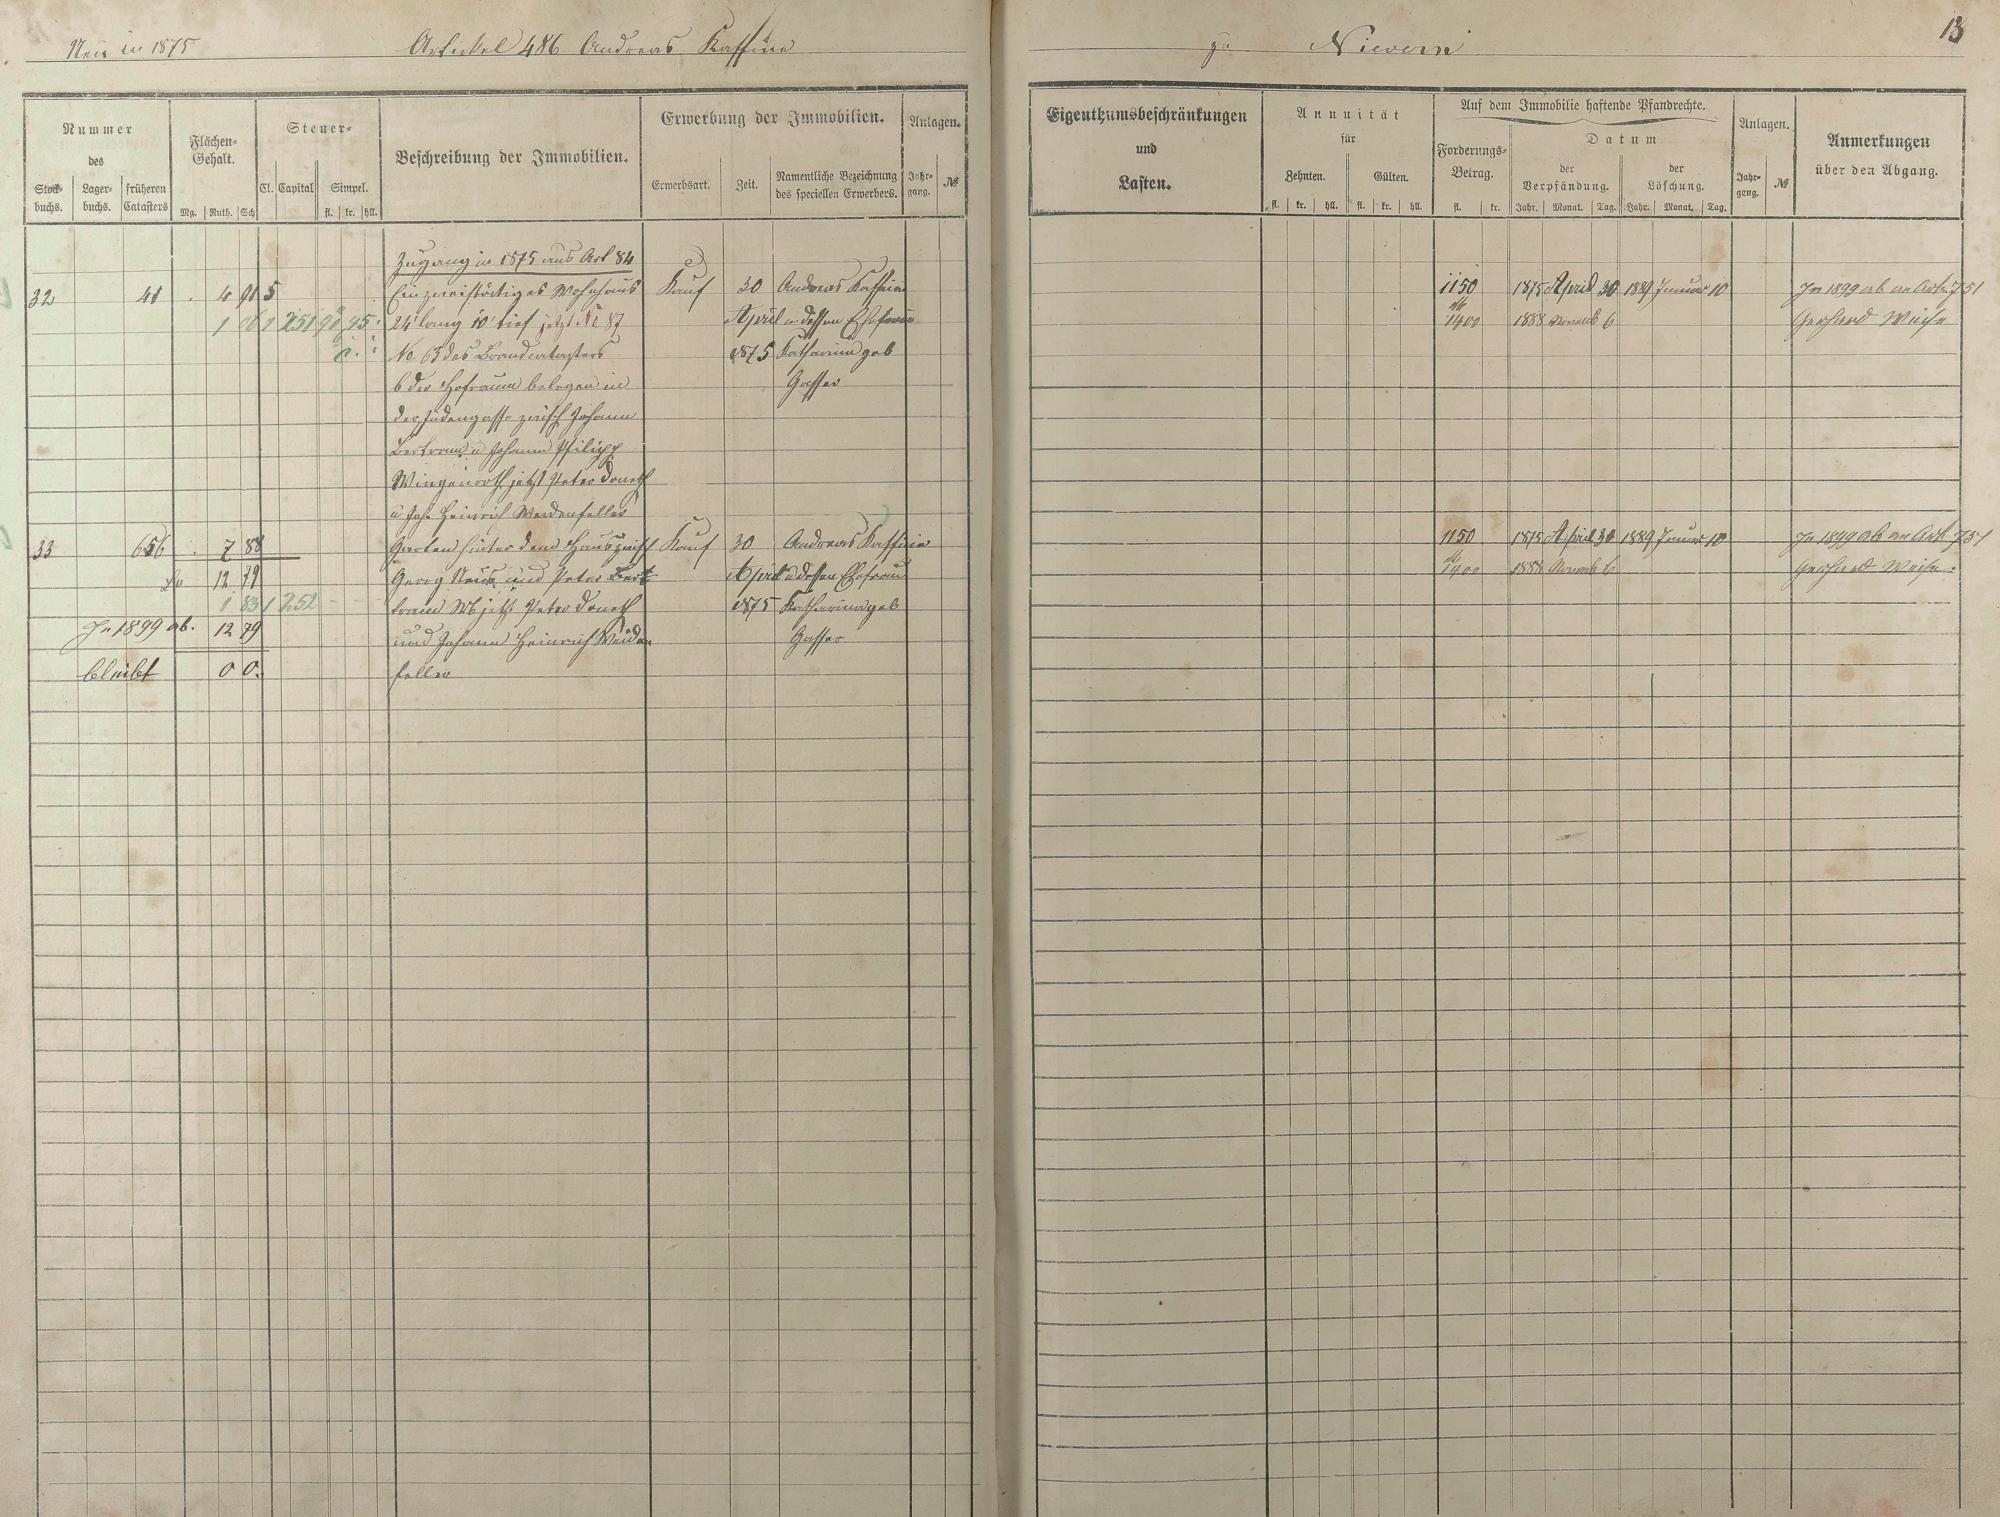 Neu in 1875
Artikel 486 Andreas Kaffine
zu Nievern
13
Nummer
des
Stockbuchs.
Lagerbuchs.
früheren Catasters
Flächen-Gehalt.
Mg. Ruth. Sch
Steuer-
Cl. Capital Simpel.
fl. kr. hll.
Beschreibung der Immobilien.
Erwerbung der Immobilien.
Erwerbsart. Zeit. Namentliche Bezeichnung
des speciellen Erwerbers.
Anlagen.
Jahr-
gang. №
Eigenthumsbeschränkungen
und
Lasten.
Annuität
für
Zehnten. Gülten.
fl. kr. hll. fl. kr. hll.
Auf dem Immobilie haftende Pfandrechte.
Forderungs-
Betrag.
fl. kr.
Datum
der
Verpfändung.
der
Löschung.
Jahr. Monat. Tag. Jahr. Monat. Tag.
Anlagen.
Jahr-
gang. №
Anmerkungen
über den Abgang.
Zugang in 1875 aus Art 84
32 41 4 91 5 Ein zweistöckiges Wohnhaus Kauf 30 Andreas Kaffine 1150 1875 April 30 1889 Januar 10 In 1899 ab an Art 751
1 251 24' lang 10' tief jetzt No 87 April u dessen Ehefrau 1400 1888 Novemb 6 Gerhard
No 63 des Brandcatasters 1875 Katharina geb
b der Hofraum belegen in Gasser
der Judengasse zwisch Johann
Bertram u Johann Philipp
Wingenroth jetzt Peter Doneth
u Joh Heinrich Weidenfeller
33 656 7 88 Garten hinter dem Haus zwisch Kauf 30 Andreas Kaffine 1150 1875 April 30 1889 Januar 10 In 1899 ab an Art 751
12 79 Georg und Peter Bert- April u dessen Ehefrau 1400 1888 Novemb 6 Gerhard
1 83 1 252 tram jetzt Peter Doneth 1875 Katharina geb
In 1899 ab. 12 79 und Johann Heinrich Weiden Gasser
bleibt 0 0. feller